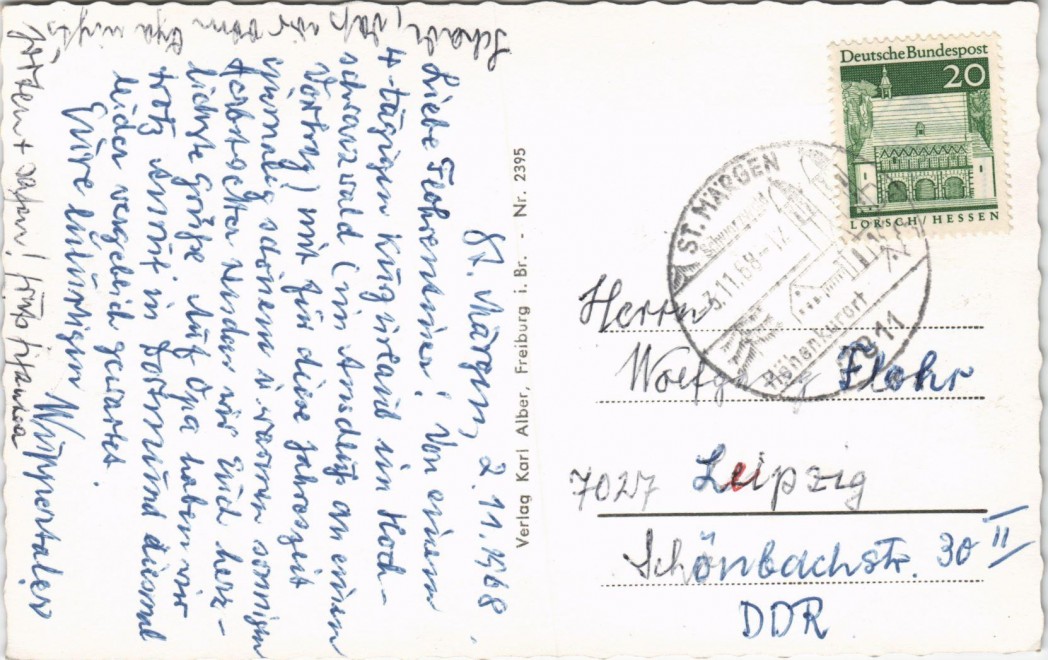 St. Märgen, 2.11.1968.
Liebe Flohrmänner! Von einem
4-tägigen Kurzurlaub im Hoch-
schwarzwald (im Anschluß an einen
Vortrag) mit für diese Jahreszeit
schönem u. warmem sonnigen
Herbstwetter senden wir Euch herz-
lichste Grüße. Auf Opa haben wir
trotz in Dortmund diesmal
leider vergeblich gewartet.
Eure Wuppertaler
Schade, daß wir vom Opa nichts
hörten + sahen!
Verlag Karl Alber, Freiburg i. Br. - Nr. 2395
Deutsche Bundespost
20
LORSCH / HESSEN
ST. MÄRGEN
Schwarzwald
3.11.68-17
Höhenkurort
7811
Herrn
Wolfgang Flohr
7027 Leipzig
Schönbachstr. 30 II
DDR